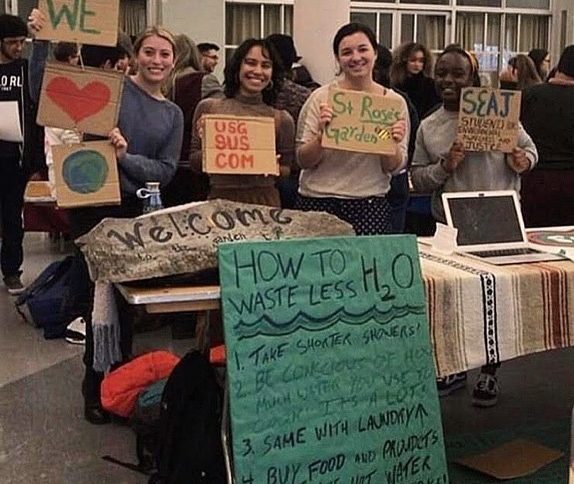 WE
ORL
USG
SUS
COM
St Rose's
Garden
SEAJ
STUDENTS for
ENVIRONMENTAL
AWARENESS AND
JUSTICE
Welcome
to the garden
HOW TO
WASTE LESS H2O
1. TAKE SHORTER SHOWERS!
2. BE CONSCIOUS OF HOW
MUCH WATER YOU USE TO
COOK! IT'S A LOT!
3. SAME WITH LAUNDRY
4 BUY FOOD AND PRODUCTS
NOT WATER